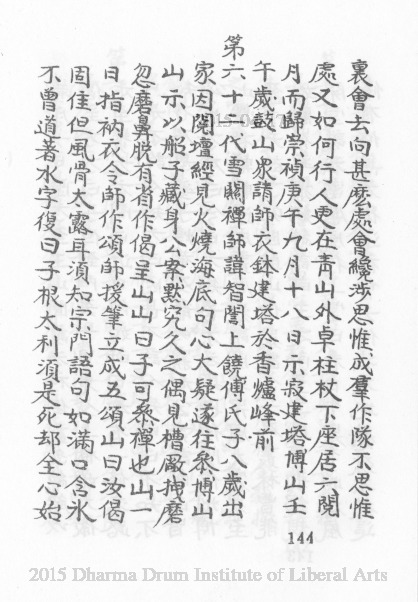 裏會去向甚麼處會纔涉思惟成羣作隊不思惟
處又如何行人更在青山外卓柱杖下座居六閱
月而歸崇禎庚午九月十八日示寂建塔博山壬
午歲鼓山眾請師衣鉢建塔於香爐峰前
第六十二代雪關禪師諱智誾上饒傅氏子八歲出
家因閱壇經見火燒海底句心大疑遂往參博山
山示以船子藏身公案默究久之偶見槽廠拽磨
忽磨鼻脫有省作偈呈山山曰子可參禪也山一
日指衲衣令師作頌師援筆立成五頌山曰汝偈
固佳但風骨太露耳須知宗門語句如滿口含氷
不曾道著水字復曰子根太利須是死却全心始
144
2015 Dharma Drum Institute of Liberal Arts